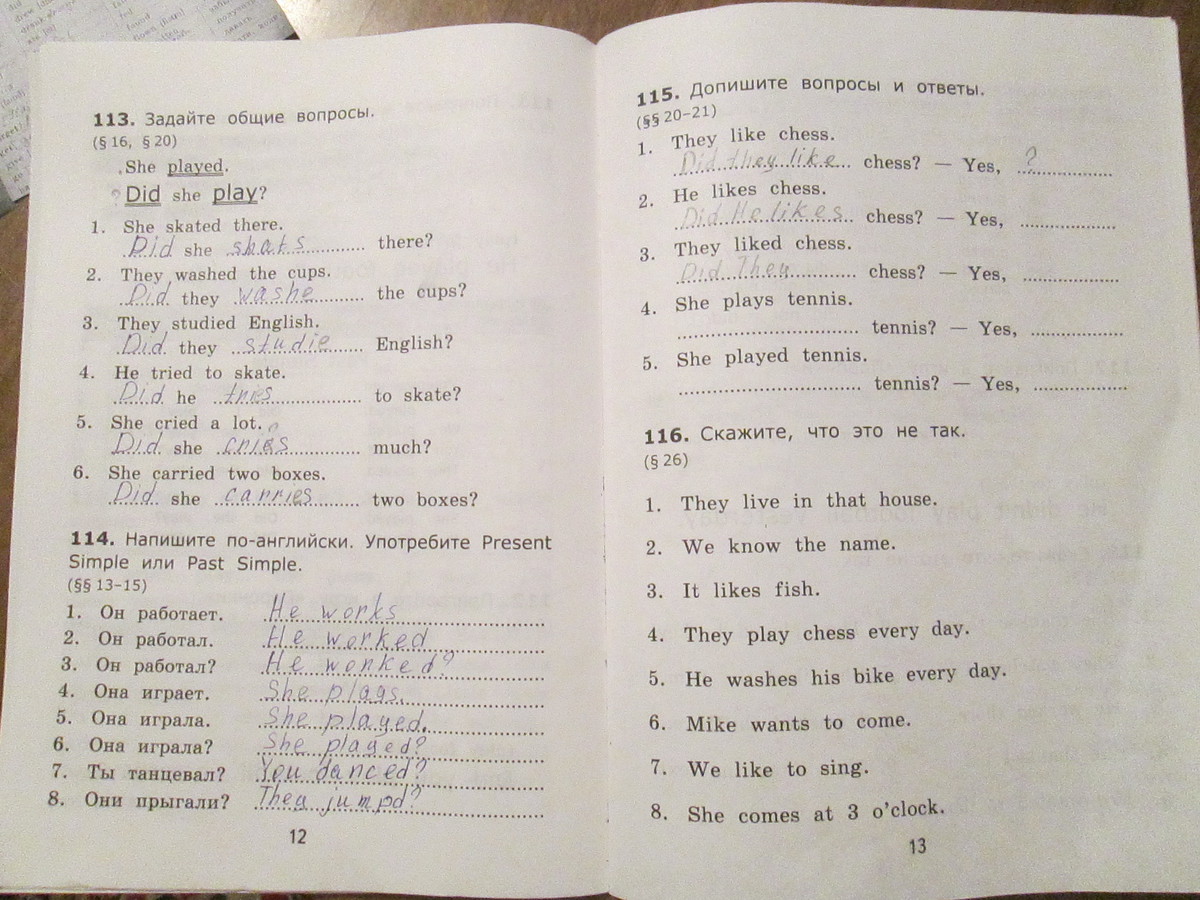 113. Задайте общие вопросы.
(§ 16, § 20)
She played.
? Did she play?
1. She skated there.
Did she skats there?
2. They washed the cups.
Did they washe the cups?
3. They studied English.
Did they studie English?
4. He tried to skate.
Did he tries to skate?
5. She cried a lot.
Did she cries much?
6. She carried two boxes.
Did she carries two boxes?
114. Напишите по-английски. Употребите Present
Simple или Past Simple.
(§§ 13–15)
1. Он работает. He works
2. Он работал. He worked
3. Он работал? He worked?
4. Она играет. She plays.
5. Она играла. She played.
6. Она играла? She played?
7. Ты танцевал? You danced?
8. Они прыгали? They jumpd?
12
115. Допишите вопросы и ответы.
(§§ 20–21)
1. They like chess.
Did they like chess? — Yes, ?
2. He likes chess.
Did He likes chess? — Yes,
3. They liked chess.
Did They chess? — Yes,
4. She plays tennis.
tennis? — Yes,
5. She played tennis.
tennis? — Yes,
116. Скажите, что это не так.
(§ 26)
1. They live in that house.
2. We know the name.
3. It likes fish.
4. They play chess every day.
5. He washes his bike every day.
6. Mike wants to come.
7. We like to sing.
8. She comes at 3 o'clock.
13